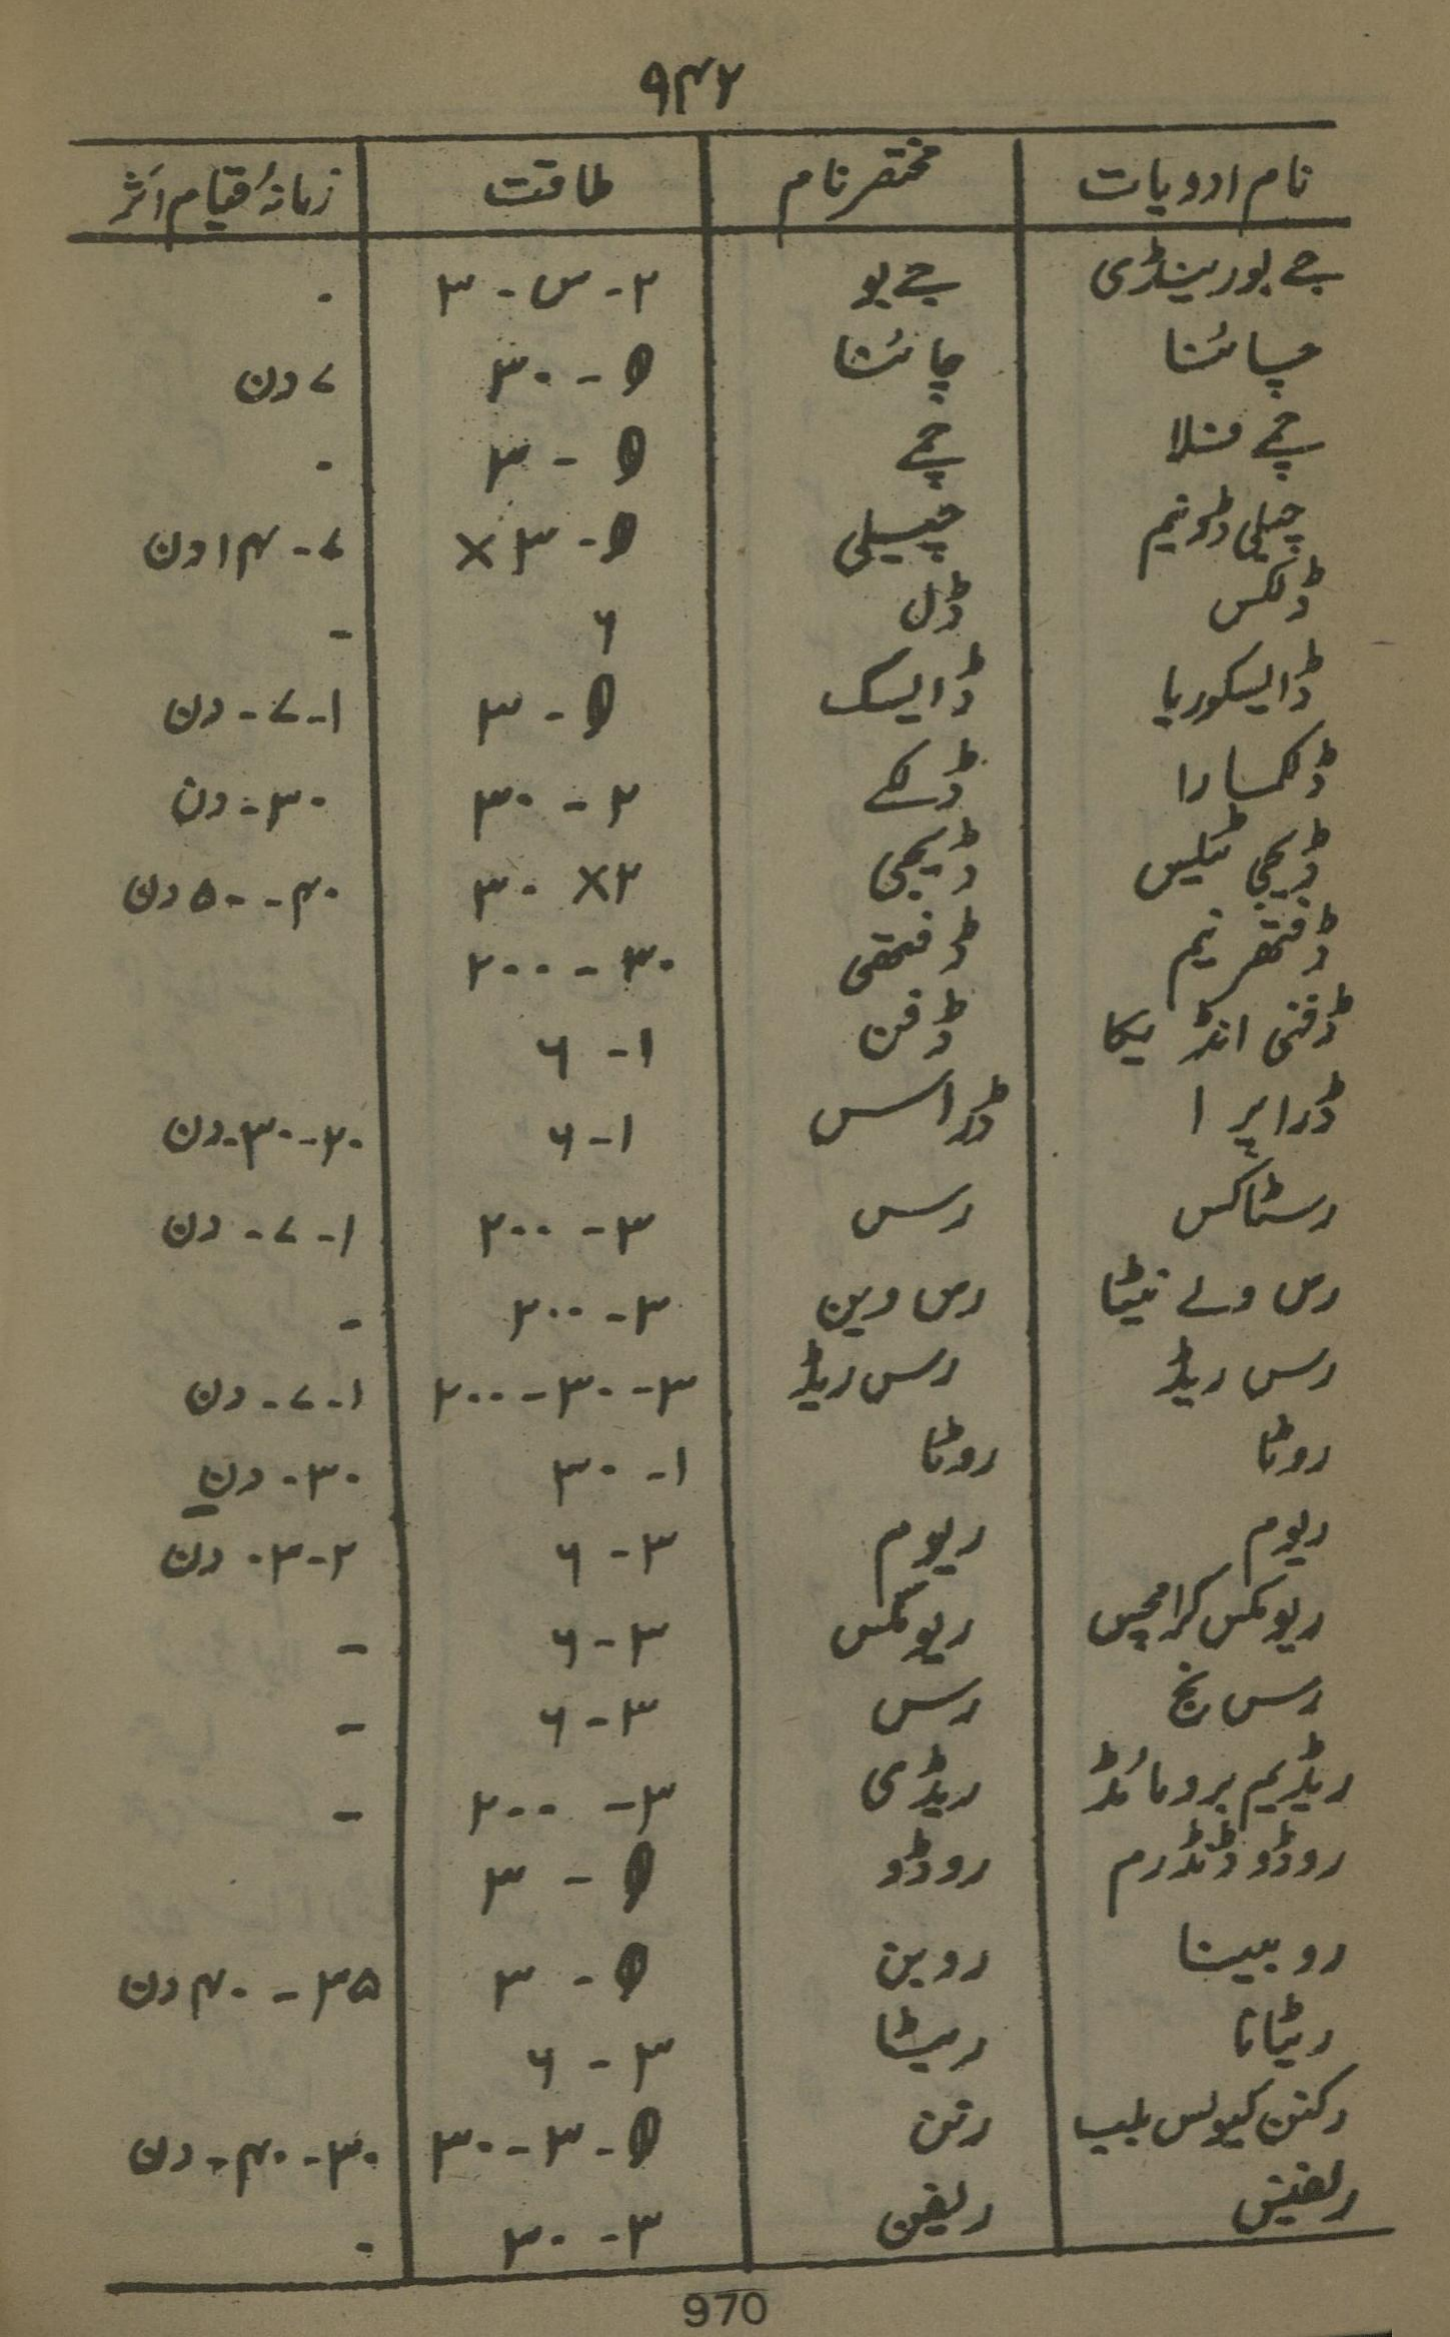 ۹۴۲
نام ادویات مختصر نام طاقت زمانۂ قیام اثر
جے بورینڈی جے بو ۲-س-۳ -
چپائنا چائنا θ-۳۰ ۷ دن
چے منلا چے θ-۳ -
چیلی ڈونیم چیلی θ-۳× ۷-۱۴ دن
ڈلکس ڈل ۶ -
ڈایسکوریا ڈایسک θ-۳ ۱-۷-دن
ڈلکمارا ڈلکے ۲-۳۰ ۳۰-دن
ڈیجی ٹیلیس ڈیجی ۲× ۳۰ ۴۰-۵۰ دن
ڈفتھرنیم ڈفتھی ۳۰-۲۰۰
ڈفنی انڈیکا ڈفن ۱-۶
ڈراپرا ڈراس ۱-۶ ۲۰-۳۰-دن
رسٹاکس رس ۳-۲۰۰ ۱-۷-دن
رس وے نیٹا رس وین ۳-۲۰۰ -
رس ریڈ رس ریڈ ۳-۳۰-۲۰۰ ۱-۷-دن
روٹا روٹا ۱-۳۰ ۳۰-دن
ریوم ریوم ۳-۶ ۲-۳-دن
ریومکس کرامچس ریومکس ۳-۶ -
رس نج رس ۳-۶ -
ریڈیم برومائڈ ریڈی ۳-۲۰۰ -
روڈوڈنڈرم روڈو θ-۳
روبینا روبن θ-۳ ۳۵-۴۰ دن
ریٹانا ریٹا ۳-۶
رکنن کیولس بلب رنن θ-۳-۳۰ ۳۰-۴۰-دن
ریفینس ریفن ۳-۳۰ -
970